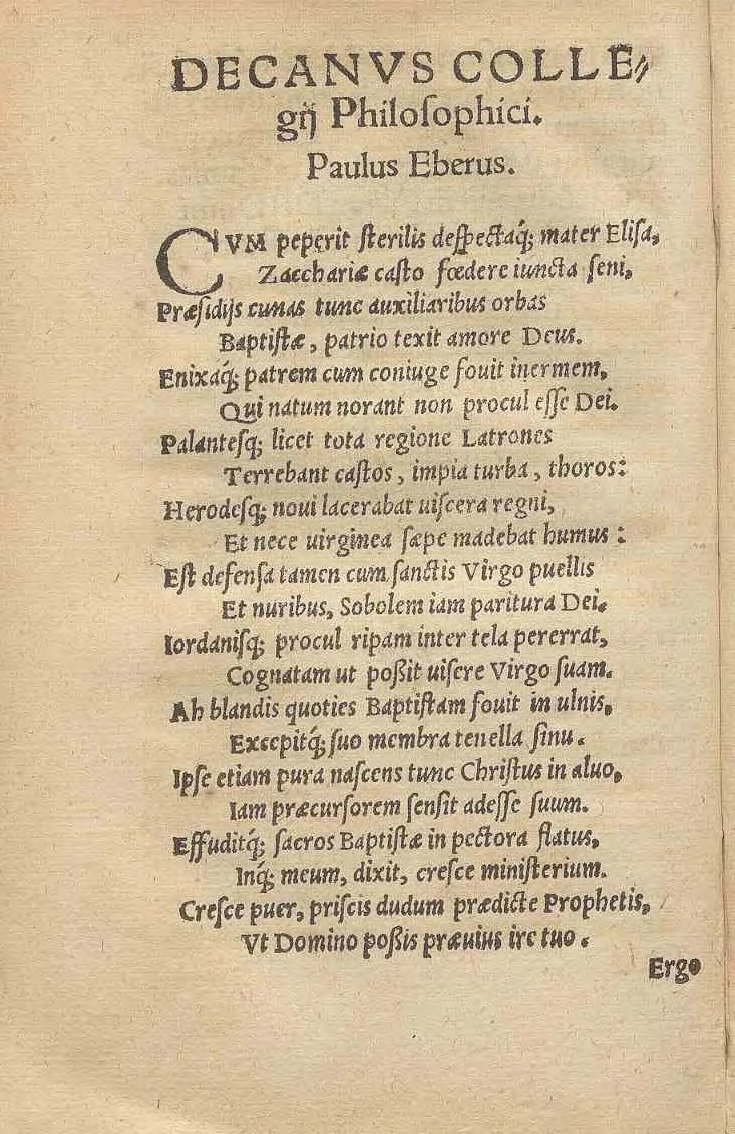 DECANVS COLLE⸗
gij Philoſophici.
Paulus Eberus.
CVM peperit ſterilis deſpectaq́; mater Eliſa,
Zacchariæ caſto fœdere iuncta ſeni,
Præſidijs cunas tunc auxiliaribus orbas
Baptiſtæ, patrio texit amore Deus.
Enixaq́; patrem cum coniuge fouit inermem,
Qui natum norant non procul eſſe Dei.
Palanteſq; licet tota regione Latrones
Terrebant caſtos, impia turba, thoros:
Herodeſq; noui lacerabat uiſcera regni,
Et nece uirginea ſæpe madebat humus:
Eſt defenſa tamen cum ſanctis Virgo puellis
Et nuribus, Sobolem iam paritura Dei.
Iordaniſq; procul ripam inter tela pererrat,
Cognatam ut poßit uiſere Virgo ſuam.
Ah blandis quoties Baptiſtam fouit in ulnis,
Excepitq́; ſuo membra tenella ſinu.
Ipſe etiam pura naſcens tunc Chriſtus in aluo,
Iam præcurſorem ſenſit adeſſe ſuum.
Effuditq́; ſacros Baptiſtæ in pectora flatus,
Inq́; meum, dixit, creſce miniſterium.
Creſce puer, priſcis dudum prædicte Prophetis,
Vt Domino poßis præuius ire tuo.
Ergo